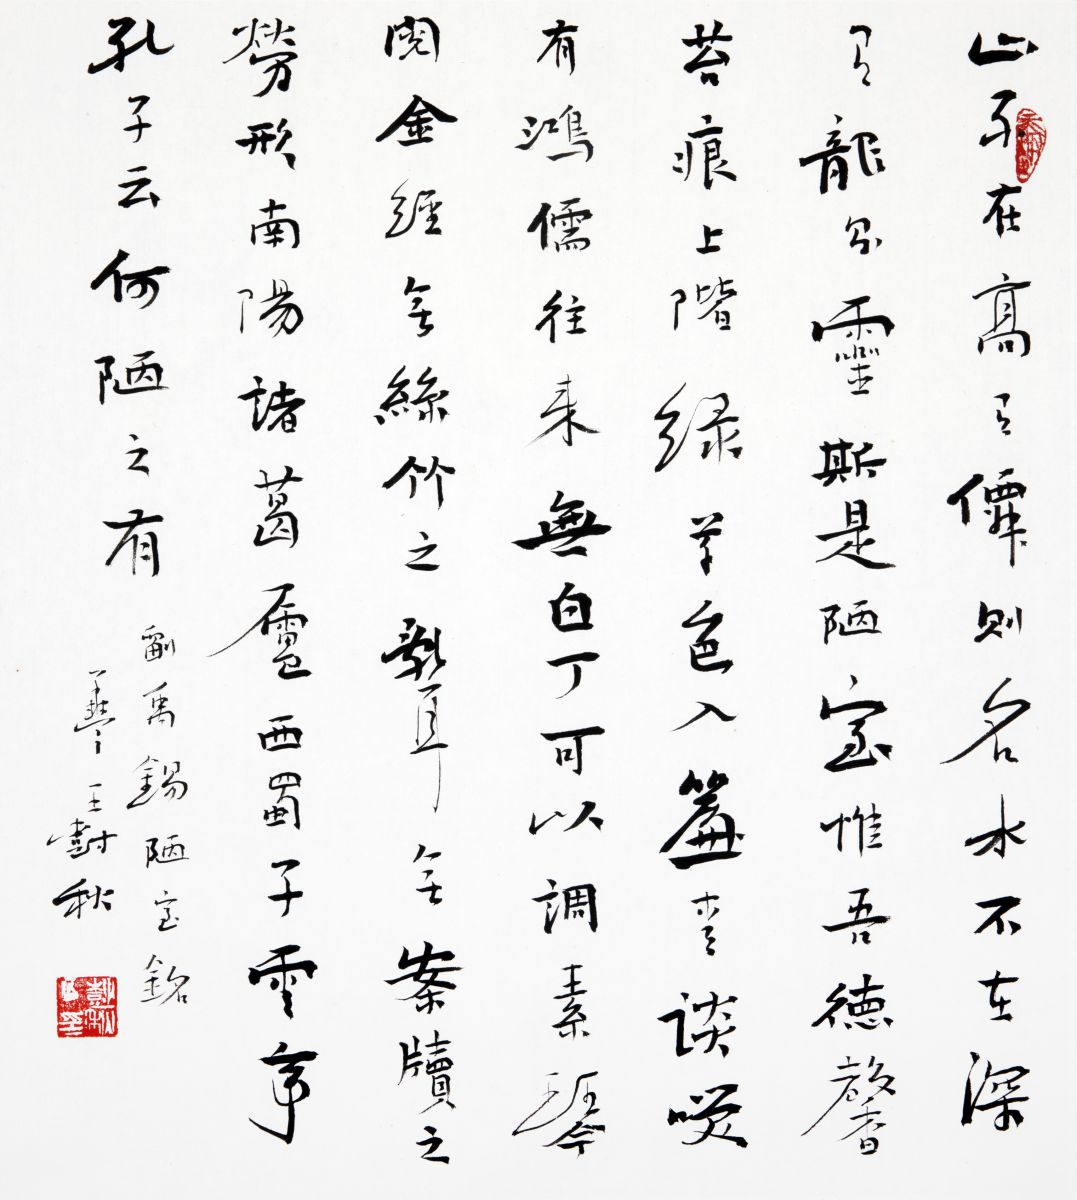 山不在高有僊則名水不在深
有龍則靈斯是陋室惟吾德馨
苔痕上階綠草色入簾青談咲
有鴻儒往来無白丁可以調素琴
閱金經無絲竹之亂耳無案牘之
勞形南陽諸葛廬西蜀子雲亭
孔子云何陋之有
劉禹錫陋室銘
王樹秋